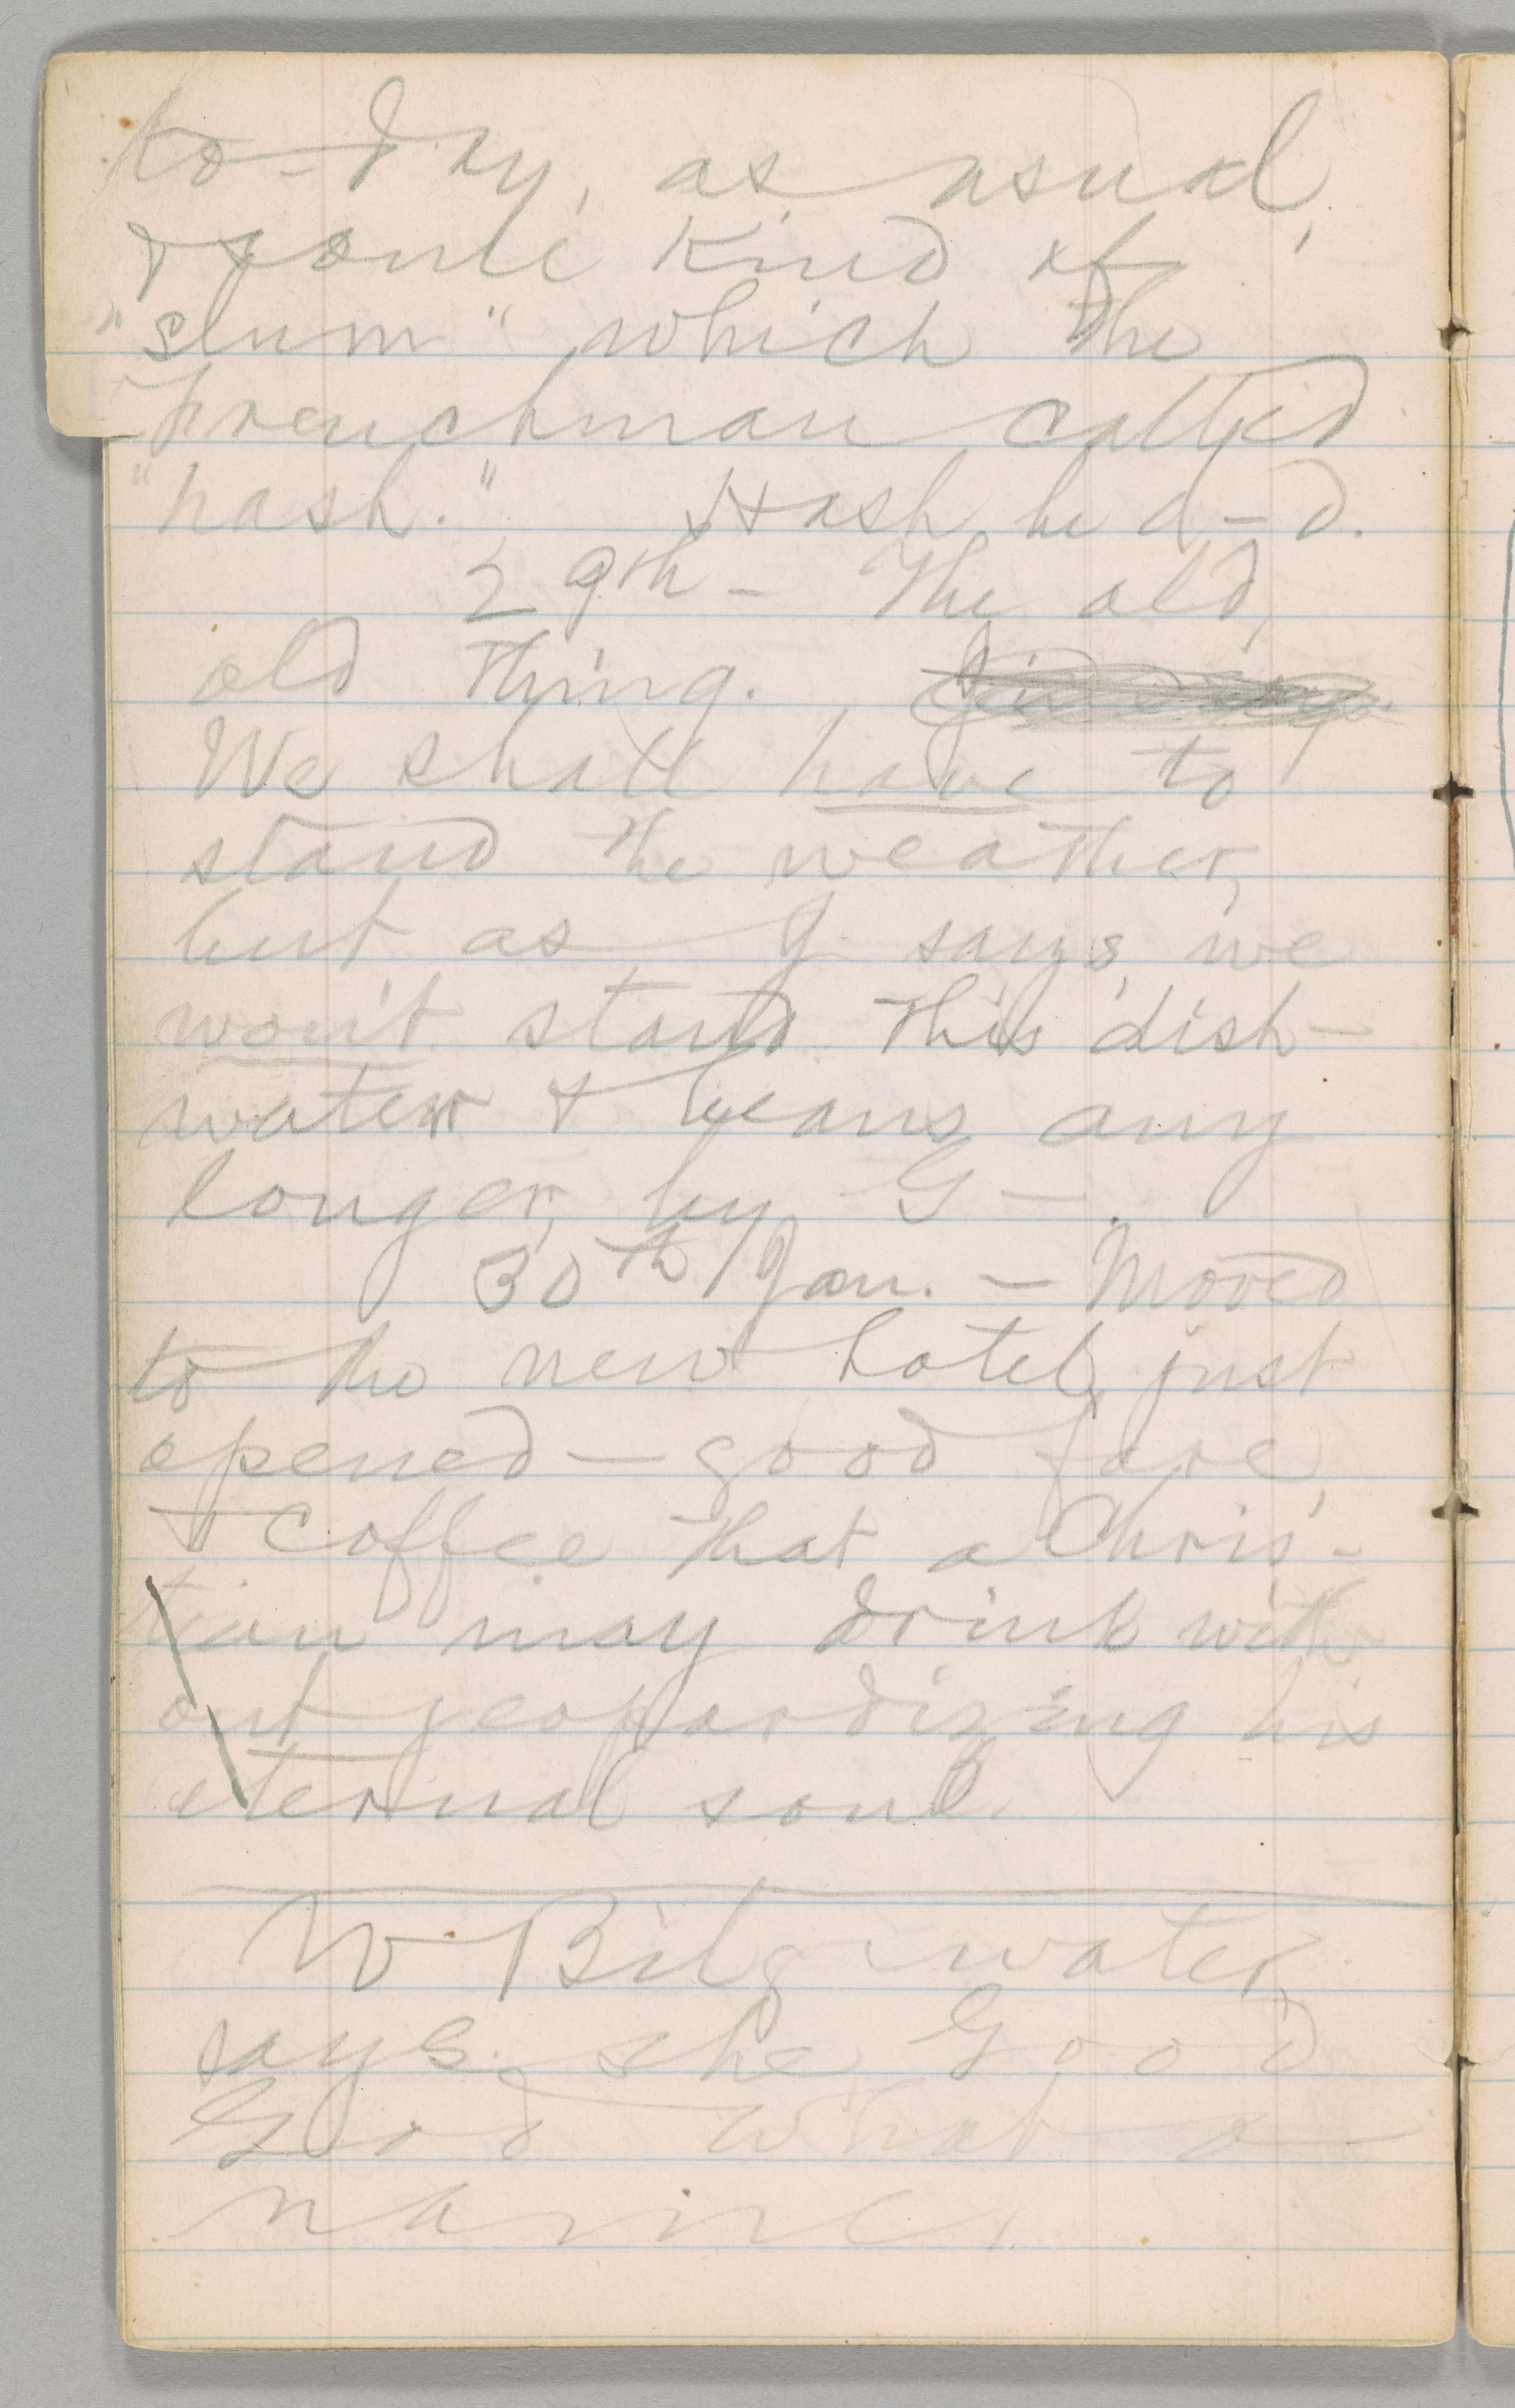 to-day, as usual,
& some kind of
"slum" which the
Frenchman called
"hash." Hash be d—d.
29th — The old,
old thing.
We shall have to
stand the weather,
but as J. says, we
won't stand this dish-
water & beans any
longer, by G—.
30th Jan. — Moved
to the new hotel, just
opened — good fare,
& coffee that a Chris-
tian may drink with
out jeopardizing his
eternal soul.
W Bilgewater,
says she Good
God what a
name.